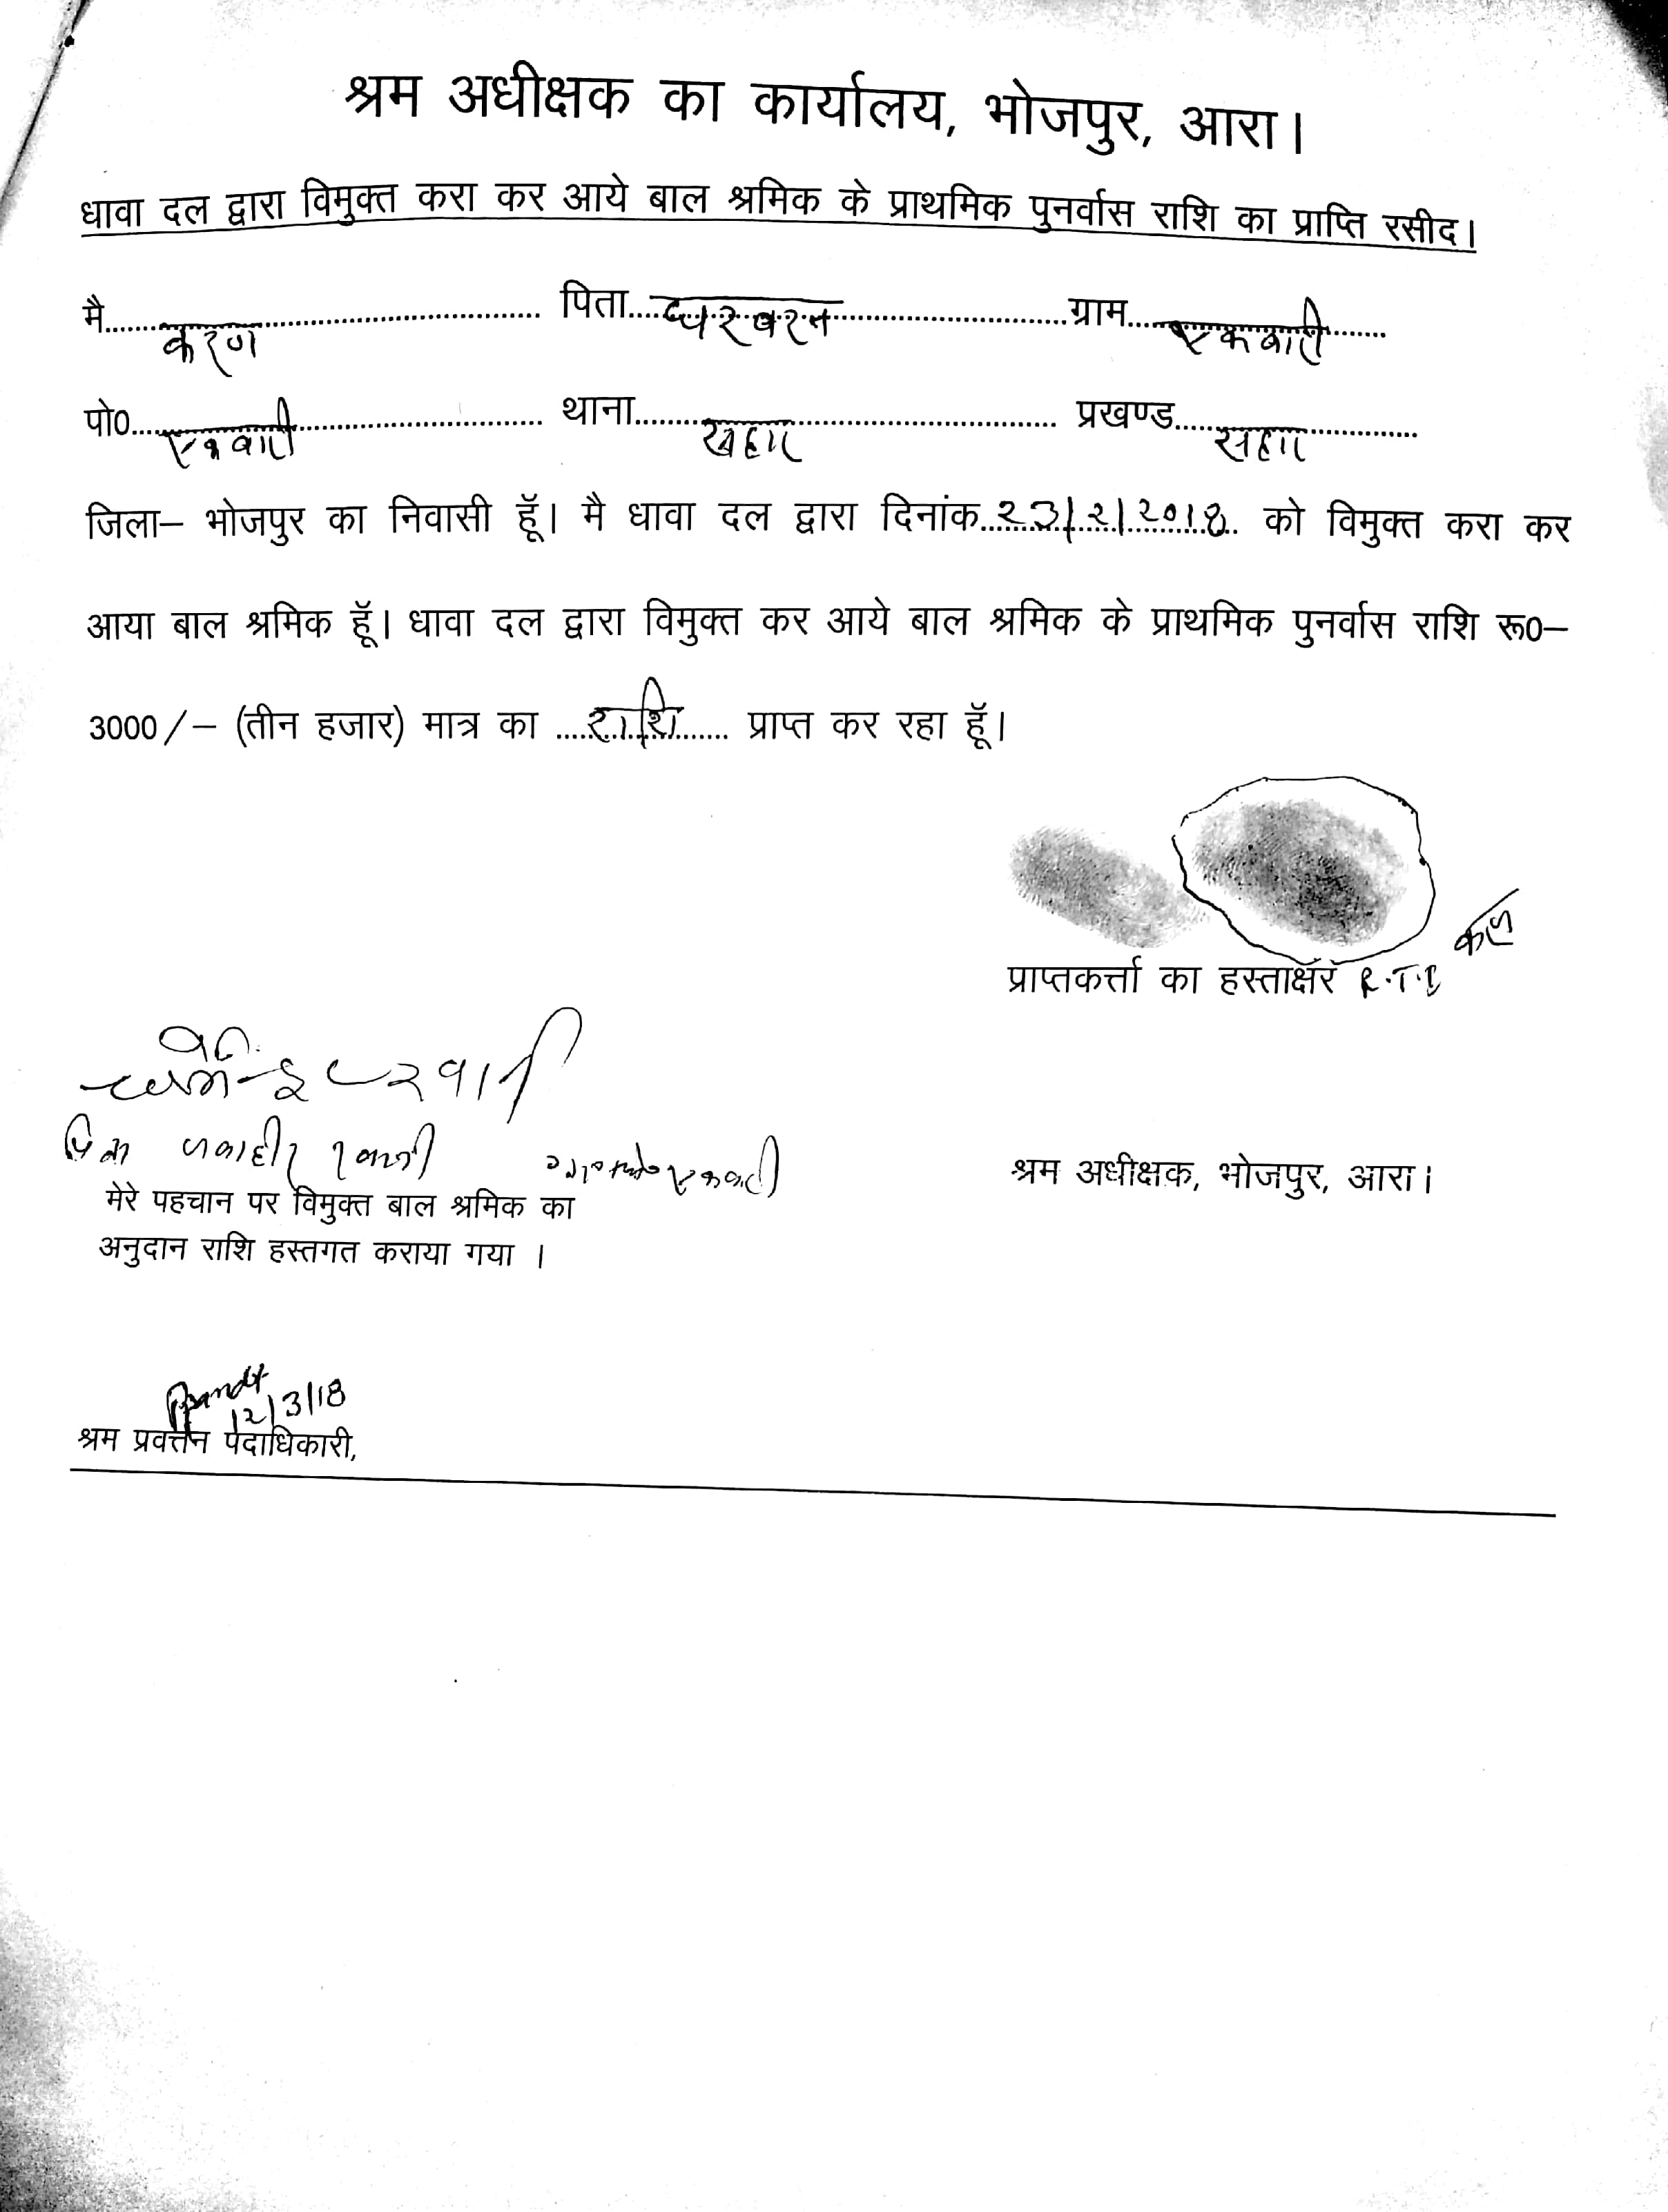 श्रम अधीक्षक का कार्यालय, भोजपुर, आरा।
धावा दल द्वारा विमुक्त करा कर आये बाल श्रमिक के प्राथमिक पुनर्वास राशि का प्राप्ति रसीद।
मै करण पिता ग्राम एकवारी
पो0 एकवारी थाना सहार प्रखण्ड सहार
जिला– भोजपुर का निवासी हूँ। मै धावा दल द्वारा दिनांक 23/2/2018 को विमुक्त करा कर
आया बाल श्रमिक हूँ। धावा दल द्वारा विमुक्त कर आये बाल श्रमिक के प्राथमिक पुनर्वास राशि रू0–
3000/– (तीन हजार) मात्र का राशि प्राप्त कर रहा हूँ।
प्राप्तकर्त्ता का हस्ताक्षर R.T.I
श्रम अधीक्षक, भोजपुर, आरा।
मेरे पहचान पर विमुक्त बाल श्रमिक का
अनुदान राशि हस्तगत कराया गया ।
12/3/18
श्रम प्रवर्त्तन पदाधिकारी,